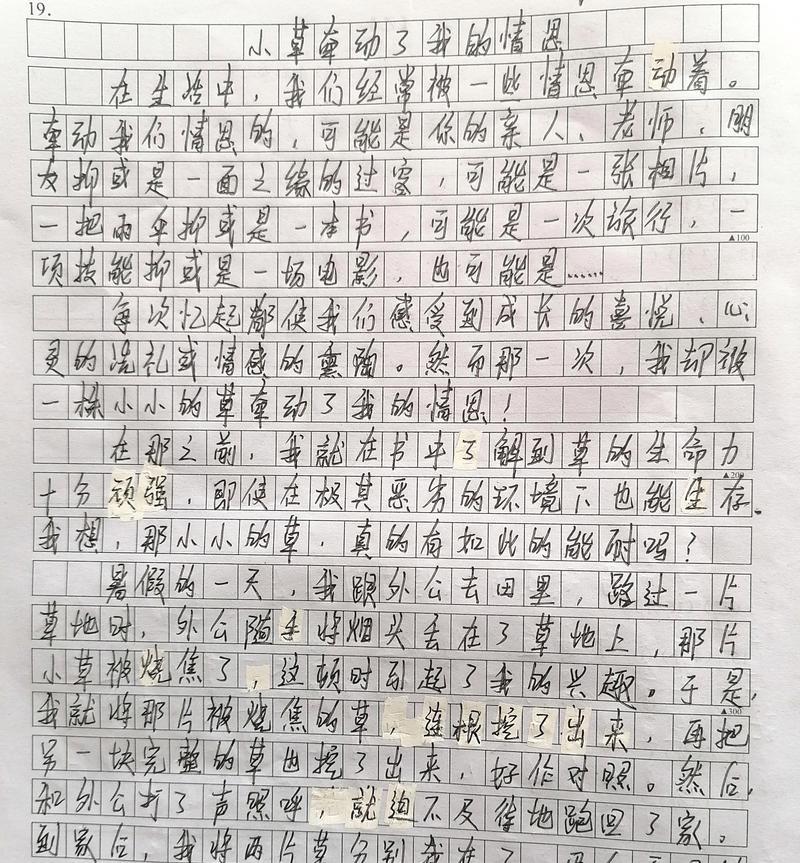 19.
小草牵动了我的情思
在生活中，我们经常被一些情思牵动着。
牵动我们情思的，可能是你的亲人、老师、朋
友抑或是一面之缘的过客，可能是一张相片，
一把雨伞抑或是一本书，可能是一次旅行，一
▲100
项技能抑或是一场电影，也可能是……
每次忆起都使我们感受到成长的喜悦、心
灵的洗礼或情感的熏陶。然而那一次，我却被
一株小小的草牵动了我的情思！
在那之前，我就在书中了解到草的生命力
▲200
十分顽强，即使在极其恶劣的环境下也能生存。
我想，那小小的草，真的有如此的能耐吗？
暑假的一天，我跟外公去田里，路过一片
草地时，外公随手将烟头丢在了草地上，那片
小草被烧焦了，这顿时引起了我的兴趣。于是，
▲300
我就将那片被烧焦的草，连根挖了出来，再把
另一块完整的草也挖了出来，好作对照。然后，
和外公打了声照呼，就迫不及待地跑回了家。
到家后，我将两片草分别栽在了